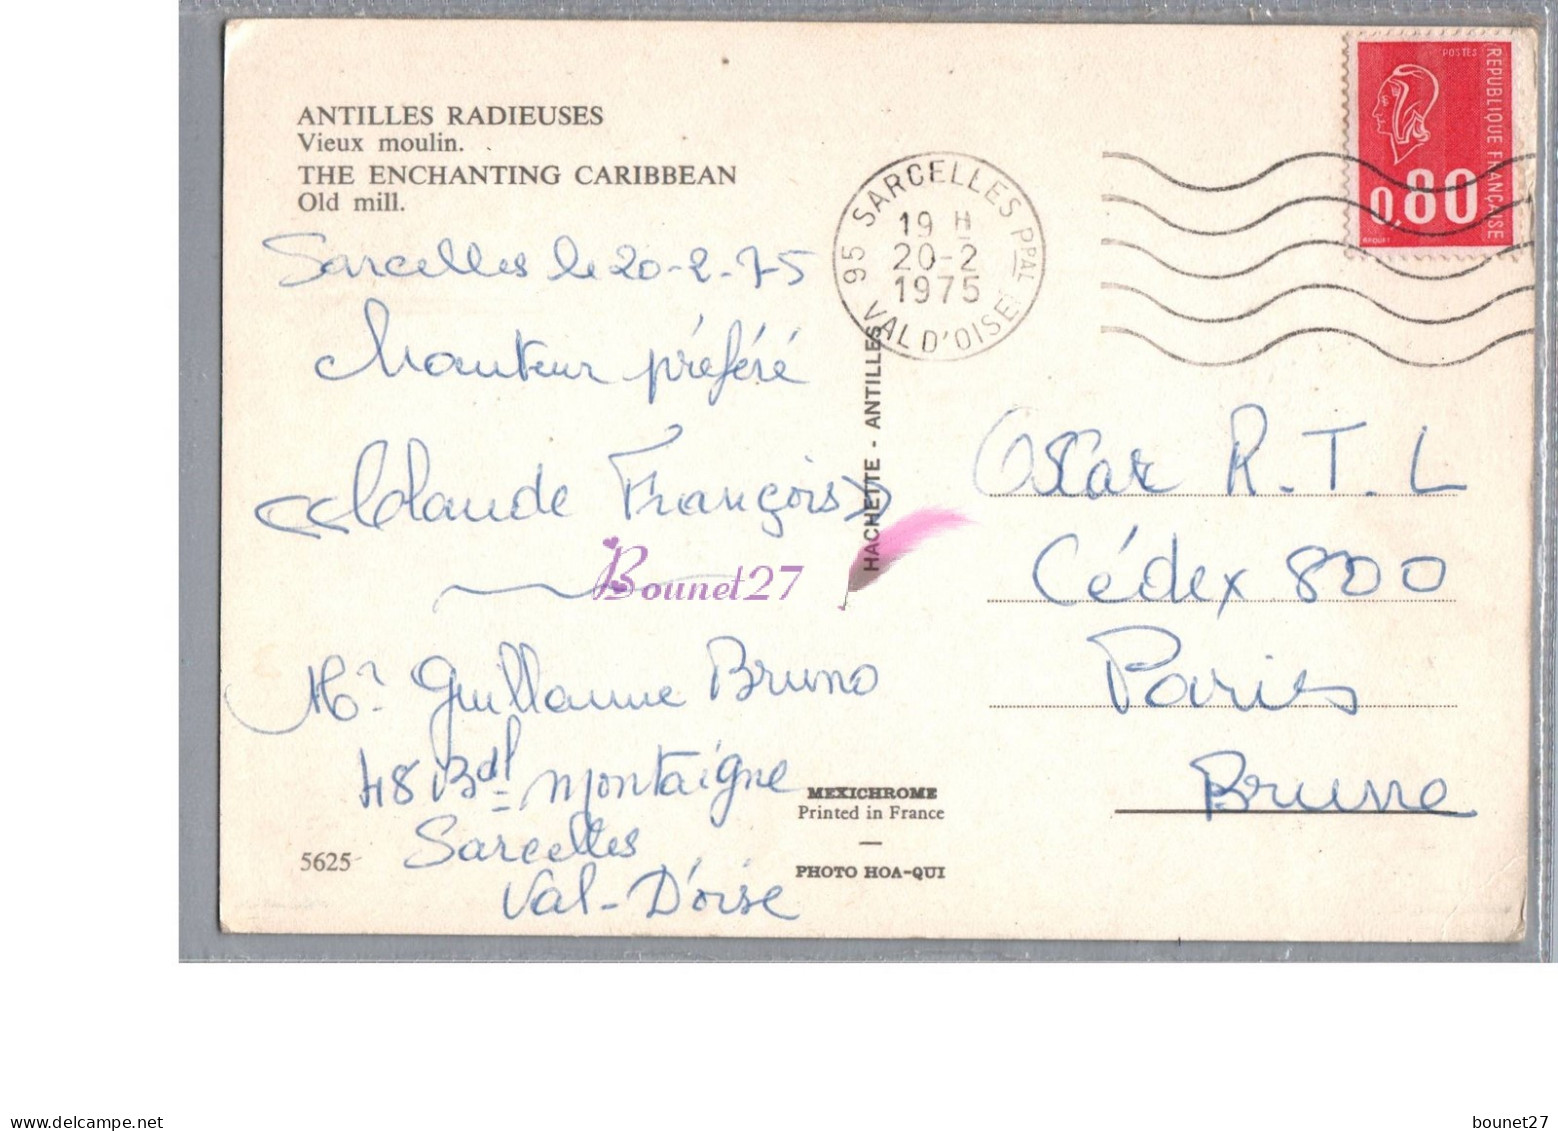 ANTILLES RADIEUSES
Vieux moulin.
THE ENCHANTING CARIBBEAN
Old mill.
Sarcelles le 20-2-75
chanteur préféré
<<Claude François>>
Bounet27
Mr Guillaume Bruno
48 Bdl montaigne
Sarcelles
Val-D'oise
5625
95 SARCELLES PPAL
19 H
20-2
1975
VAL D'OISE
HACHETTE - ANTILLES
MEXICHROME
Printed in France
PHOTO HOA-QUI
POSTES
REPUBLIQUE FRANÇAISE
0,80
Oscar R.T.L
Cédex 800
Paris
Brune
delcampe.net
bounet27